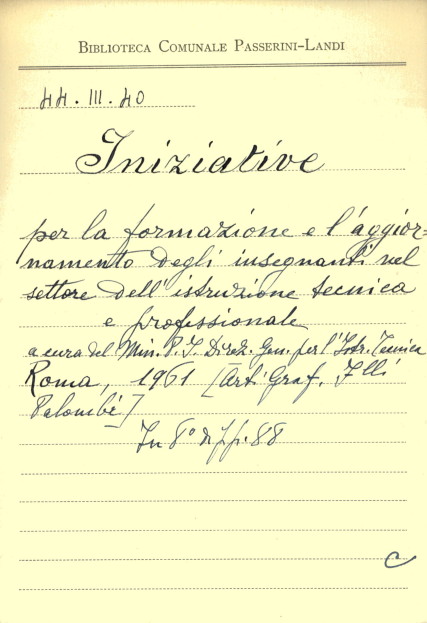 BIBLIOTECA COMUNALE PASSERINI-LANDI
44. III. 40
Iniziative
per la formazione e l'aggior=
namento degli insegnanti nel
settore dell'istruzione tecnica
e professionale
a cura del Min. P. I. Direz. Gen. per l'Istr. Tecnica
Roma, 1961 [Arti Graf. F.lli
Palombi]
In 8° di pp. 88
C